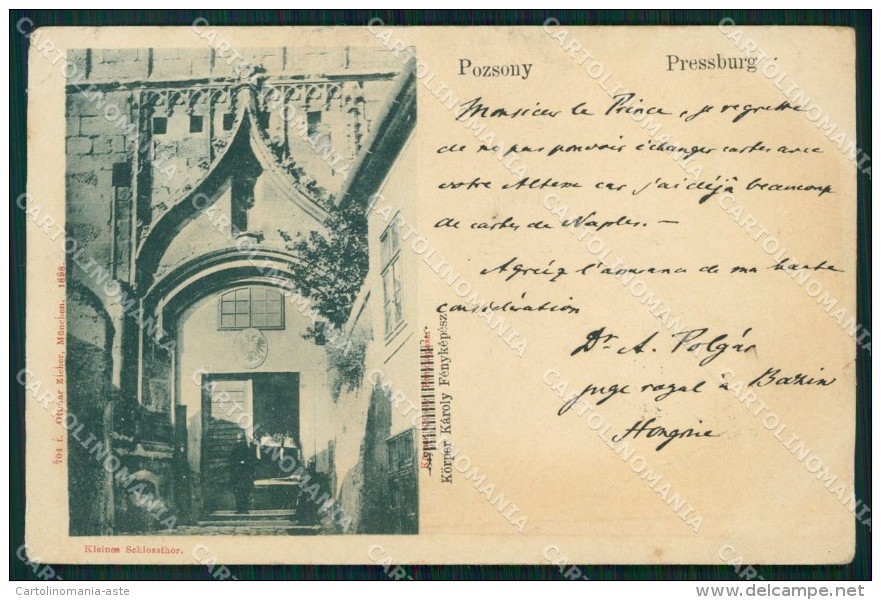 Pozsony Pressburg
Monsieur le Prince, je regrette
de ne pas pouvoir échanger cartes avec
votre Altesse car j'ai déjà beaucoup
de cartes de Naples. —
Agréez l'assurance de ma haute
considération
Dr A. Polgár
juge royal à Bazin
Hongrie
Körper Károly Fényképész
704 i. Ottmar Zieher, München, 1898.
Kleines Schlossthor.
CARTOLINOMANIA
Cartolinomania-aste
delcampe.net